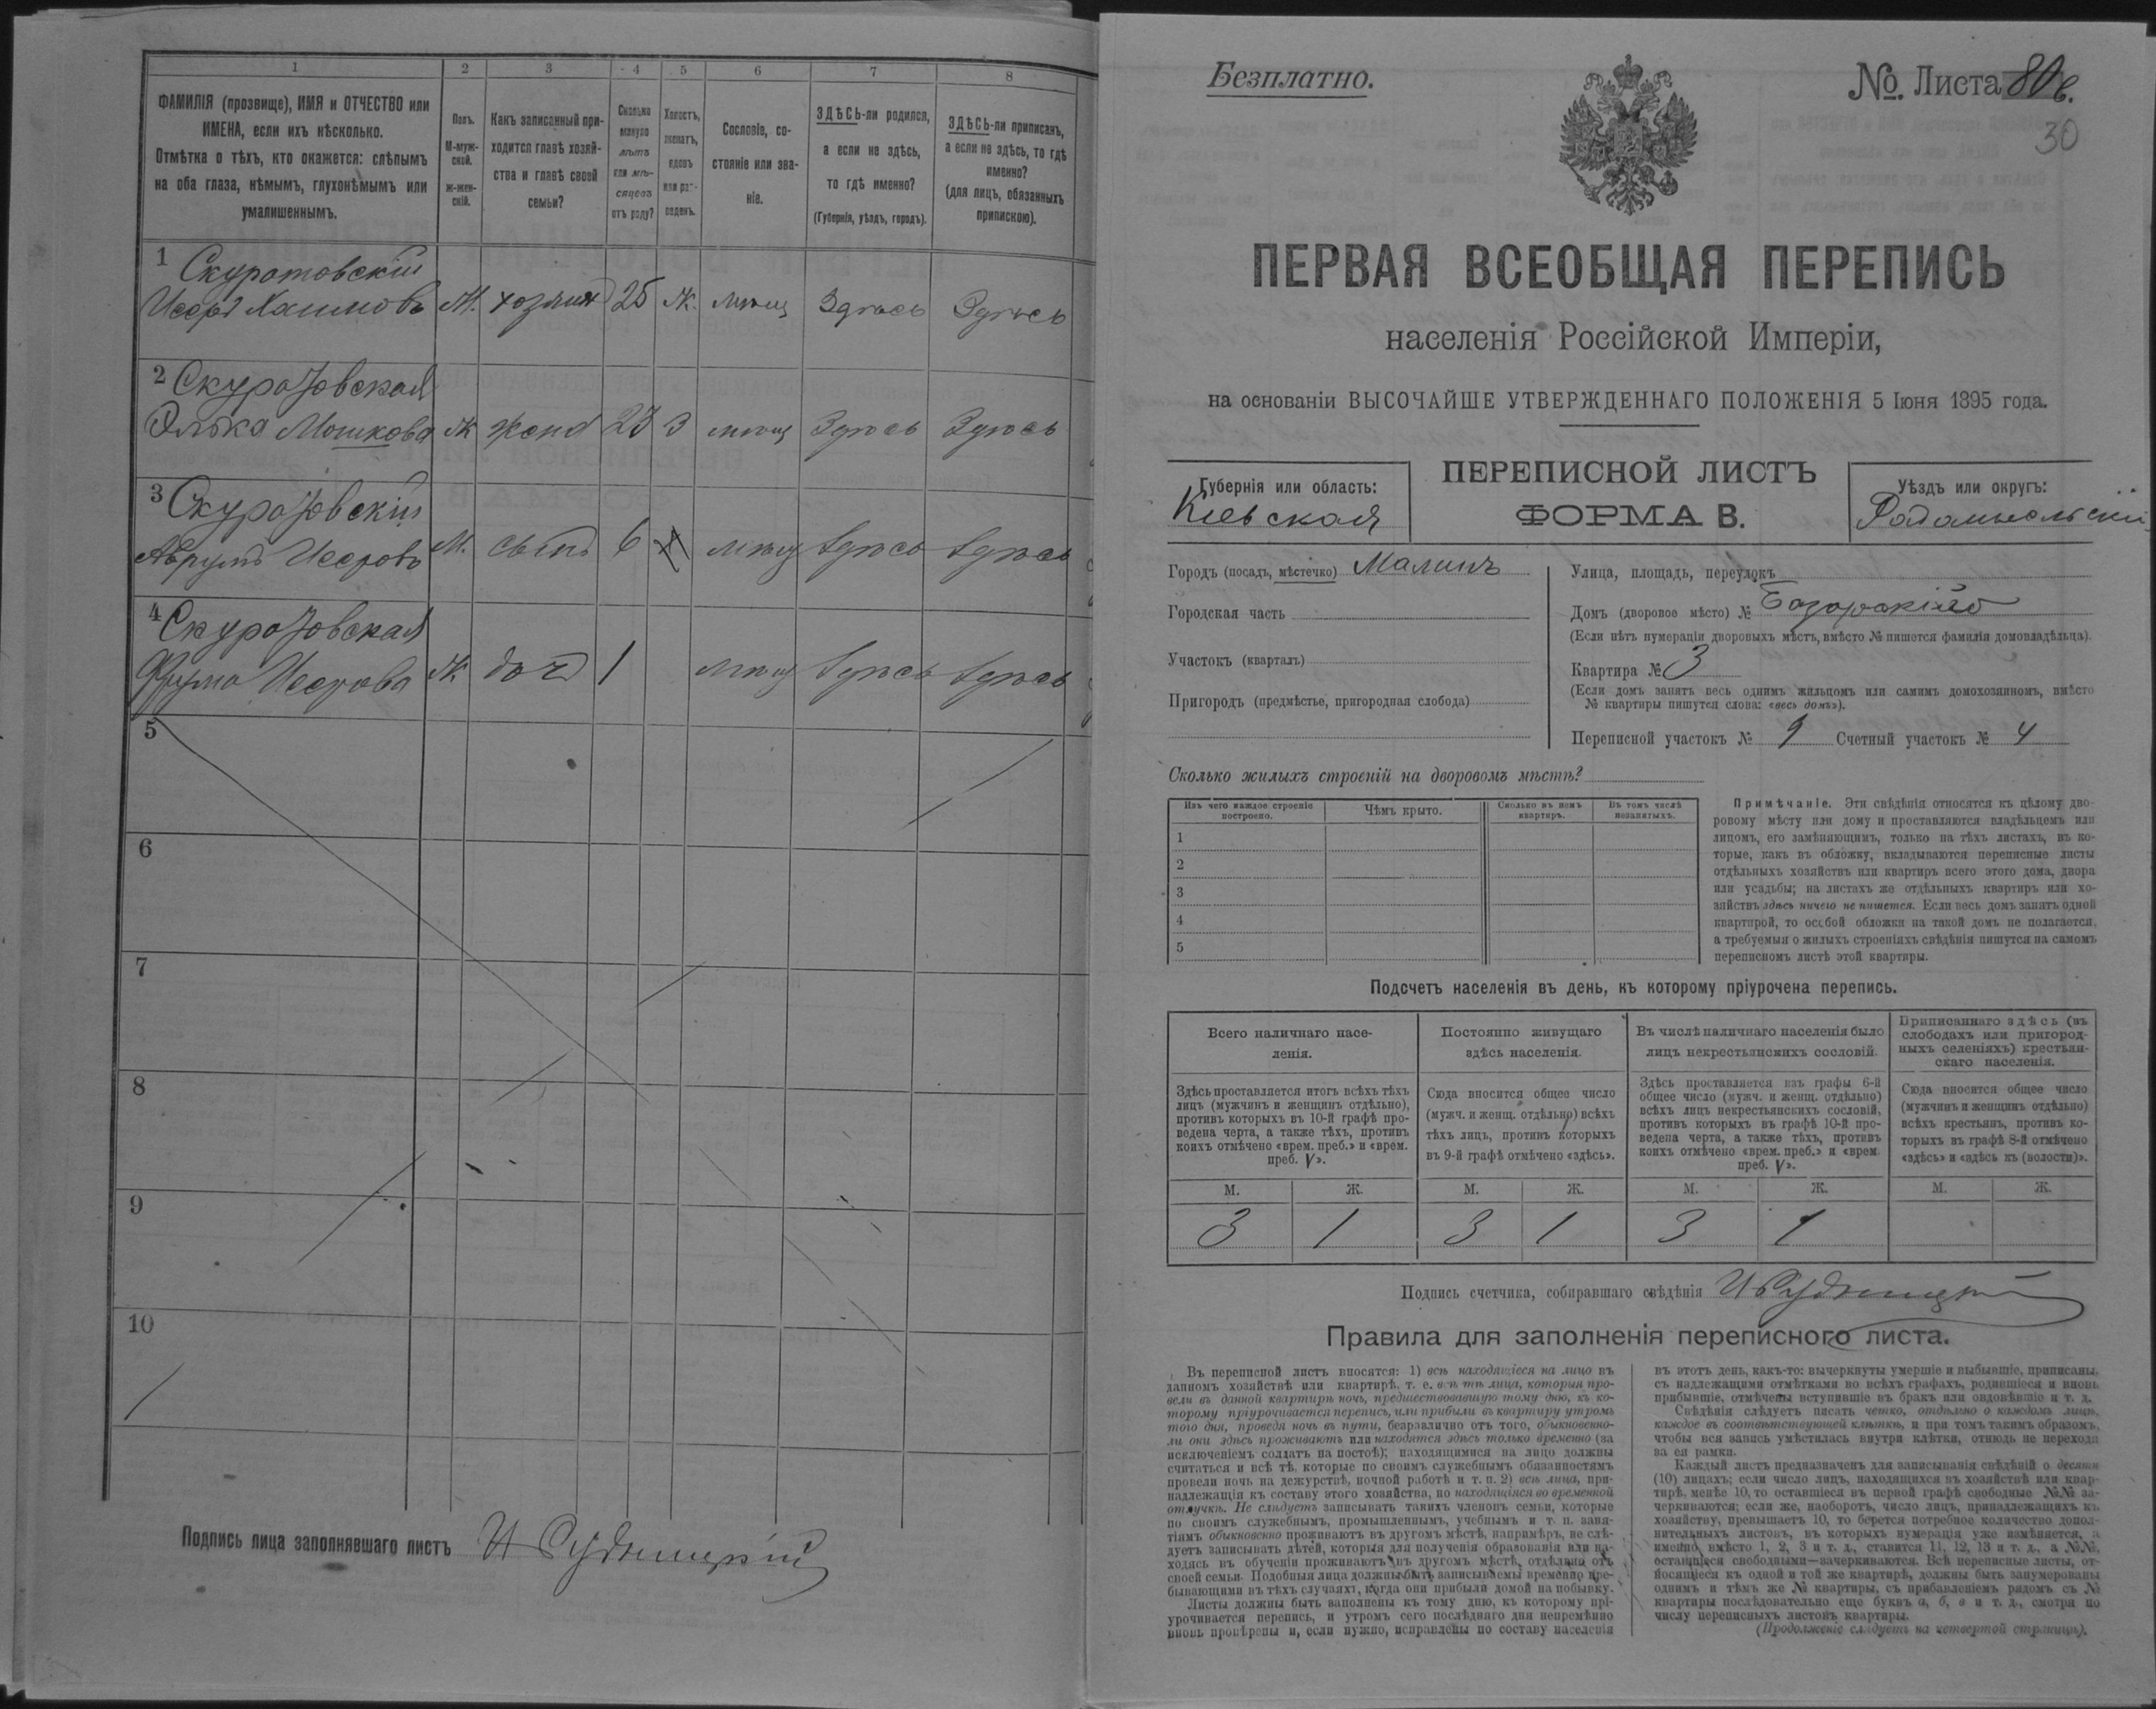 1
2
3
4
5
6
7
8
ФАМИЛІЯ (прозвище), ИМЯ и ОТЧЕСТВО или
ИМЕНА, если ихъ нѣсколько.
Отмѣтка о тѣхъ, кто окажется: слѣпымъ
на оба глаза, нѣмымъ, глухонѣмымъ или
умалишеннымъ.
Полъ.
М-муж-
ской.
ж-жен-
скій.
Какъ записанный при-
ходится главѣ хозяй-
ства и главѣ своей
семьи?
Сколько
минуло
лѣтъ
или мѣ-
сяцевъ
отъ роду?
Холостъ,
женатъ,
вдовъ
или раз-
веденъ.
Сословіе, со-
стояніе или зва-
ніе.
ЗДѢСЬ-ли родился,
а если не здѣсь,
то гдѣ именно?
(Губернія, уѣздъ, городъ).
ЗДѢСЬ-ли приписанъ,
а если не здѣсь, то гдѣ
именно?
(для лицъ, обязанныхъ
припискою).
1 Скуратовскій
Исеръ Хаимовъ М. хозяин 25 Ж. мѣщ Здѣсь Здѣсь
2 Скуратовская
Элька Мошкова Ж жена 23 З мѣщ Здѣсь Здѣсь
3 Скуратовскій
Аврумъ Исеровъ М. сынъ 6 мѣщ Здѣсь Здѣсь
4 Скуратовская
Фрума Исерова Ж доч 1 мѣщ Здѣсь Здѣсь
5
6
7
8
9
10
Подпись лица заполнявшаго листъ И Судницкій
Безплатно.
№. Листа 80 в.
30
ПЕРВАЯ ВСЕОБЩАЯ ПЕРЕПИСЬ
населенія Россійской Имперіи,
на основаніи ВЫСОЧАЙШЕ УТВЕРЖДЕННАГО ПОЛОЖЕНІЯ 5 Іюня 1895 года.
Губернія или область:
Кіевская
ПЕРЕПИСНОЙ ЛИСТЪ
ФОРМА В.
Уѣздъ или округъ:
Радомысльскій
Городъ (посадъ, мѣстечко) Малинъ
Городская часть
Участокъ (кварталъ)
Пригородъ (предмѣстье, пригородная слобода)
Улица, площадь, переулокъ
Домъ (дворовое мѣсто) №
(Если нѣтъ нумераціи дворовыхъ мѣстъ, вмѣсто № пишется фамилія домовладѣльца).
Квартира № 3
(Если домъ занятъ весь однимъ жильцомъ или самимъ домохозяиномъ, вмѣсто
№ квартиры пишутся слова: «весь домъ»).
Переписной участокъ № 9 Счетный участокъ № 4
Сколько жилыхъ строеній на дворовомъ мѣстѣ?
Изъ чего каждое строеніе
построено.
Чѣмъ крыто.
Сколько въ немъ
квартиръ.
Въ томъ числѣ
незанятыхъ.
1
2
3
4
5
Примѣчаніе. Эти свѣдѣнія относятся къ цѣлому дво-
ровому мѣсту или дому и проставляются владѣльцемъ или
лицомъ, его замѣняющимъ, только на тѣхъ листахъ, въ ко-
торые, какъ въ обложку, вкладываются переписные листы
отдѣльныхъ хозяйствъ или квартиръ всего этого дома, двора
или усадьбы; на листахъ же отдѣльныхъ квартиръ или хо-
зяйствъ здѣсь ничего не пишется. Если весь домъ занятъ одной
квартирой, то особой обложки на такой домъ не полагается,
а требуемыя о жилыхъ строеніяхъ свѣдѣнія пишутся на самомъ
переписномъ листѣ этой квартиры.
Подсчетъ населенія въ день, къ которому пріурочена перепись.
Всего наличнаго насе-
ленія.
Здѣсь проставляется итогъ всѣхъ тѣхъ
лицъ (мужчинъ и женщинъ отдѣльно),
противъ которыхъ въ 10-й графѣ про-
ведена черта, а также тѣхъ, противъ
коихъ отмѣчено «врем. преб.» и «врем.
преб. V».
Постоянно живущаго
здѣсь населенія.
Сюда вносится общее число
(мужч. и женщ. отдѣльно) всѣхъ
тѣхъ лицъ, противъ которыхъ
въ 9-й графѣ отмѣчено «здѣсь».
Въ числѣ наличнаго населенія было
лицъ некрестьянскихъ сословій.
Здѣсь проставляется изъ графы 6-й
общее число (мужч. и женщ. отдѣльно)
всѣхъ лицъ некрестьянскихъ сословій,
противъ которыхъ въ графѣ 10-й про-
ведена черта, а также тѣхъ, противъ
коихъ отмѣчено «врем. преб.» и «врем.
преб. V».
Приписаннаго здѣсь (въ
слободахъ или пригород-
ныхъ селеніяхъ) крестьян-
скаго населенія.
Сюда вносится общее число
(мужчинъ и женщинъ отдѣльно)
всѣхъ крестьянъ, противъ ко-
торыхъ въ графѣ 8-й отмѣчено
«здѣсь» и «здѣсь къ (волости)».
М. Ж. М. Ж. М. Ж. М. Ж.
3 1 3 1 3 1
Подпись счетчика, собиравшаго свѣдѣнія И Судницкій
Правила для заполненія переписного листа.
Въ переписной листъ вносятся: 1) всѣ находящіеся на лицо въ
данномъ хозяйствѣ или квартирѣ, т. е. всѣ тѣ лица, которыя про-
вели въ данной квартирѣ ночь, предшествовавшую тому дню, къ ко-
торому пріурочивается перепись, или прибыли въ квартиру утромъ
того дня, проведя ночь въ пути, безразлично отъ того, обыкновенно-
ли они здѣсь проживаютъ или находятся здѣсь только временно (за
исключеніемъ солдатъ на постоѣ); находящимися на лицо должны
считаться и всѣ тѣ, которые по своимъ служебнымъ обязанностямъ
провели ночь на дежурствѣ, ночной работѣ и т. п. 2) всѣ лица, при-
надлежащія къ составу этого хозяйства, но находящіяся во временной
отлучкѣ. Не слѣдуетъ записывать такихъ членовъ семьи, которые
по своимъ служебнымъ, промышленнымъ, учебнымъ и т. п. заня-
тіямъ обыкновенно проживаютъ въ другомъ мѣстѣ, напримѣръ, не слѣ-
дуетъ записывать дѣтей, которыя для полученія образованія или на-
ходясь въ обученіи проживаютъ въ другомъ мѣстѣ, отдѣльно отъ
своей семьи. Подобныя лица должны быть записываемы временно пре-
бывающими въ тѣхъ случаяхъ, когда они прибыли домой на побывку.
Листы должны быть заполнены къ тому дню, къ которому прі-
урочивается перепись, и утромъ сего послѣдняго дня непремѣнно
вновь провѣрены и, если нужно, исправлены по составу населенія
въ этотъ день, какъ-то: вычеркнуты умершіе и выбывшіе, приписаны,
съ надлежащими отмѣтками во всѣхъ графахъ, родившіеся и вновь
прибывшіе, отмѣчены вступившіе въ бракъ или овдовѣвшіе и т. д.
Свѣдѣнія слѣдуетъ писать четко, отдѣльно о каждомъ лицѣ,
каждое въ соотвѣтствующей клѣткѣ, и при томъ такимъ образомъ,
чтобы вся запись умѣстилась внутри клѣтки, отнюдь не переходя
за ея рамки.
Каждый листъ предназначенъ для записыванія свѣдѣній о десяти
(10) лицахъ; если число лицъ, находящихся въ хозяйствѣ или квар-
тирѣ, менѣе 10, то оставшіеся въ первой графѣ свободные №№ за-
черкиваются; если же, наоборотъ, число лицъ, принадлежащихъ къ
хозяйству, превышаетъ 10, то берется потребное количество допол-
нительныхъ листовъ, въ которыхъ нумерація уже измѣняется, а
именно, вмѣсто 1, 2, 3 и т. д., ставится 11, 12, 13 и т. д., а №№,
остающіеся свободными—зачеркиваются. Всѣ переписные листы, от-
носящіеся къ одной и той же квартирѣ, должны быть занумерованы
однимъ и тѣмъ же № квартиры, съ прибавленіемъ рядомъ съ №
квартиры послѣдовательно еще буквъ а, б, в и т. д., смотря по
числу переписныхъ листовъ квартиры.
(Продолженіе слѣдуетъ на четвертой страницѣ).